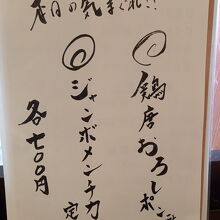 本日の気まぐれ!!
鶏唐おろしポン
ジャンボメンチカ
定
各七〇〇円